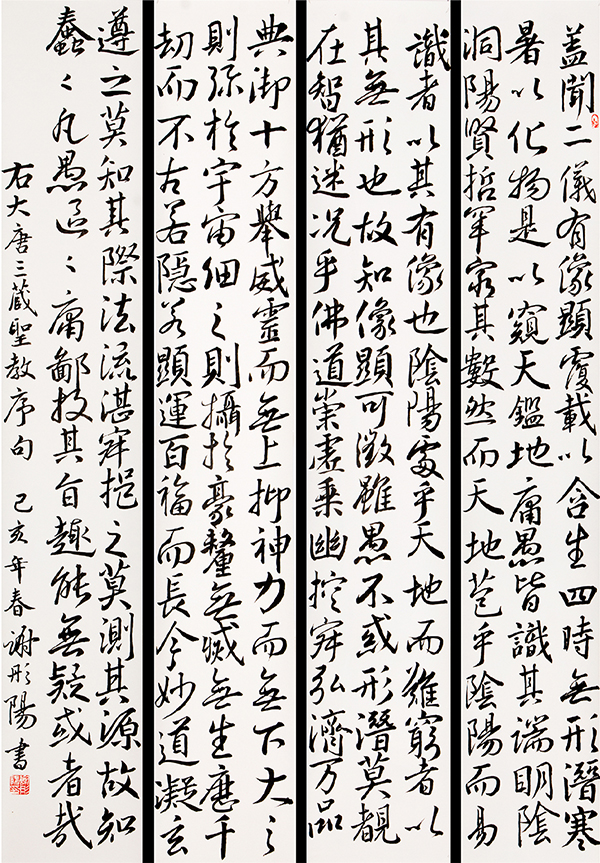 盖聞二儀有像顯覆載以含生四時無形潛寒
暑以化物是以窺天鑑地庸愚皆識其端明陰
洞陽賢哲罕窮其數然而天地苞乎陰陽而易
識者以其有像也陰陽處乎天地而難窮者以
其無形也故知像顯可徵雖愚不或形潛莫覩
在智猶迷況乎佛道崇虛乘幽控寂弘濟万品
典御十方舉威靈而無上抑神力而無下大之
則弥於宇宙細之則攝於豪釐無滅無生歷千
劫而不古若隱若顯運百福而長今妙道凝玄
遵之莫知其際法流湛寂挹之莫測其源故知
蠢〻凡愚區〻庸鄙投其旨趣能無疑或者哉
右大唐三藏聖教序句 己亥年春 謝彤陽書